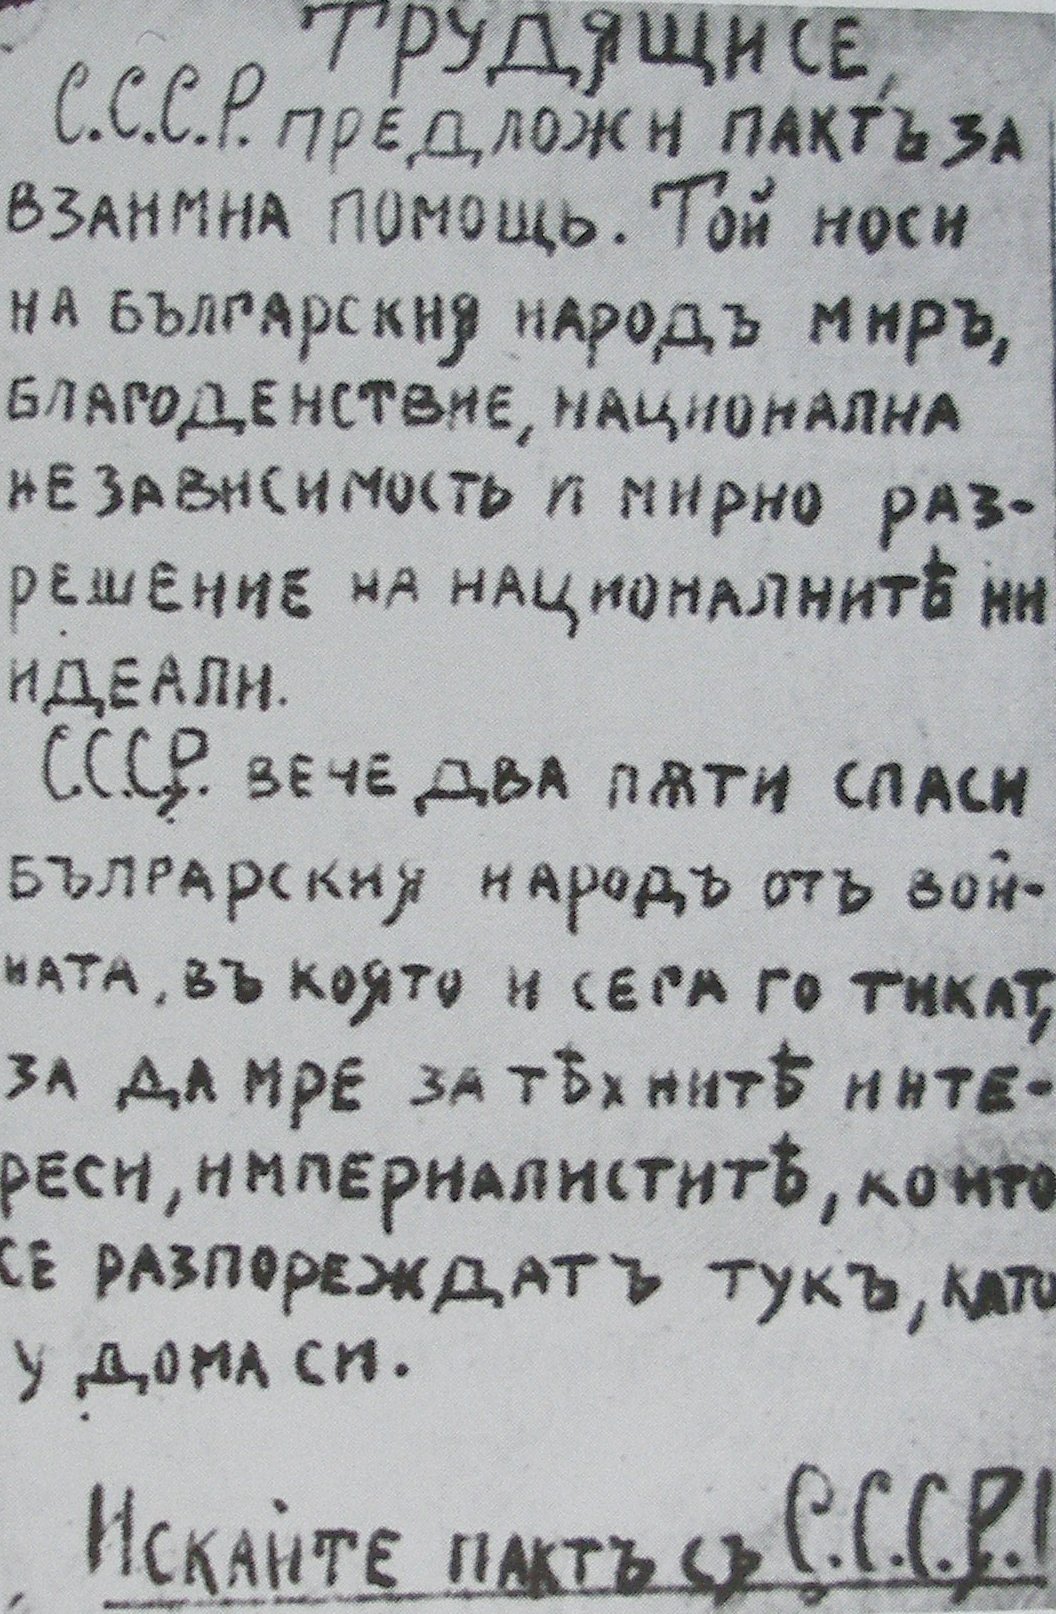 ТРУДЯЩИ СЕ,
С.С.С.Р. ПРЕДЛОЖИ ПАКТЪ ЗА
ВЗАИМНА ПОМОЩЬ. ТОЙ НОСИ
НА БЪЛГАРСКИЯ НАРОДЪ МИРЪ,
БЛАГОДЕНСТВИЕ, НАЦИОНАЛНА
НЕЗАВИСИМОСТЬ И МИРНО РАЗ-
РЕШЕНИЕ НА НАЦИОНАЛНИТѢ НИ
ИДЕАЛИ.
С.С.С.Р. ВЕЧЕ ДВА ПѪТИ СПАСИ
БЪЛГРАРСКИЯ НАРОДЪ ОТЪ ВОЙ-
НАТА, ВЪ КОЯТО И СЕГА ГО ТИКАТ,
ЗА ДА МРЕ ЗА ТѢХНИТѢ ИНТЕ-
РЕСИ, ИМПЕРИАЛИСТИТѢ, КОИТО
СЕ РАЗПОРЕЖДАТЪ ТУКЪ, КАТО
У ДОМА СИ.
ИСКАЙТЕ ПАКТЪ СЪ С.С.С.Р.!